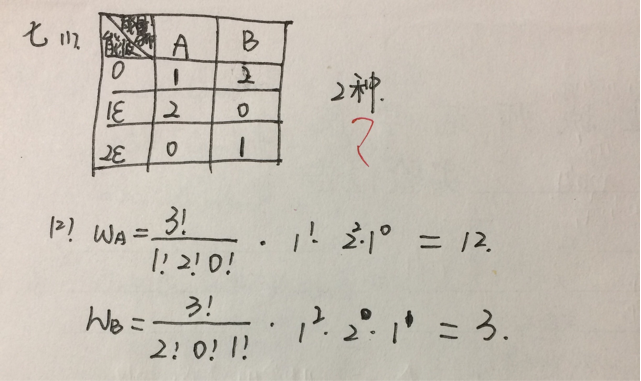 七 (1).
A B
0 1 2
1ε 2 0
2ε 0 1
2种.
?
(2) WA = 3! / 1! 2! 0! · 1¹ · 2² · 1⁰ = 12.
WB = 3! / 2! 0! 1! · 1² · 2⁰ · 1¹ = 3.